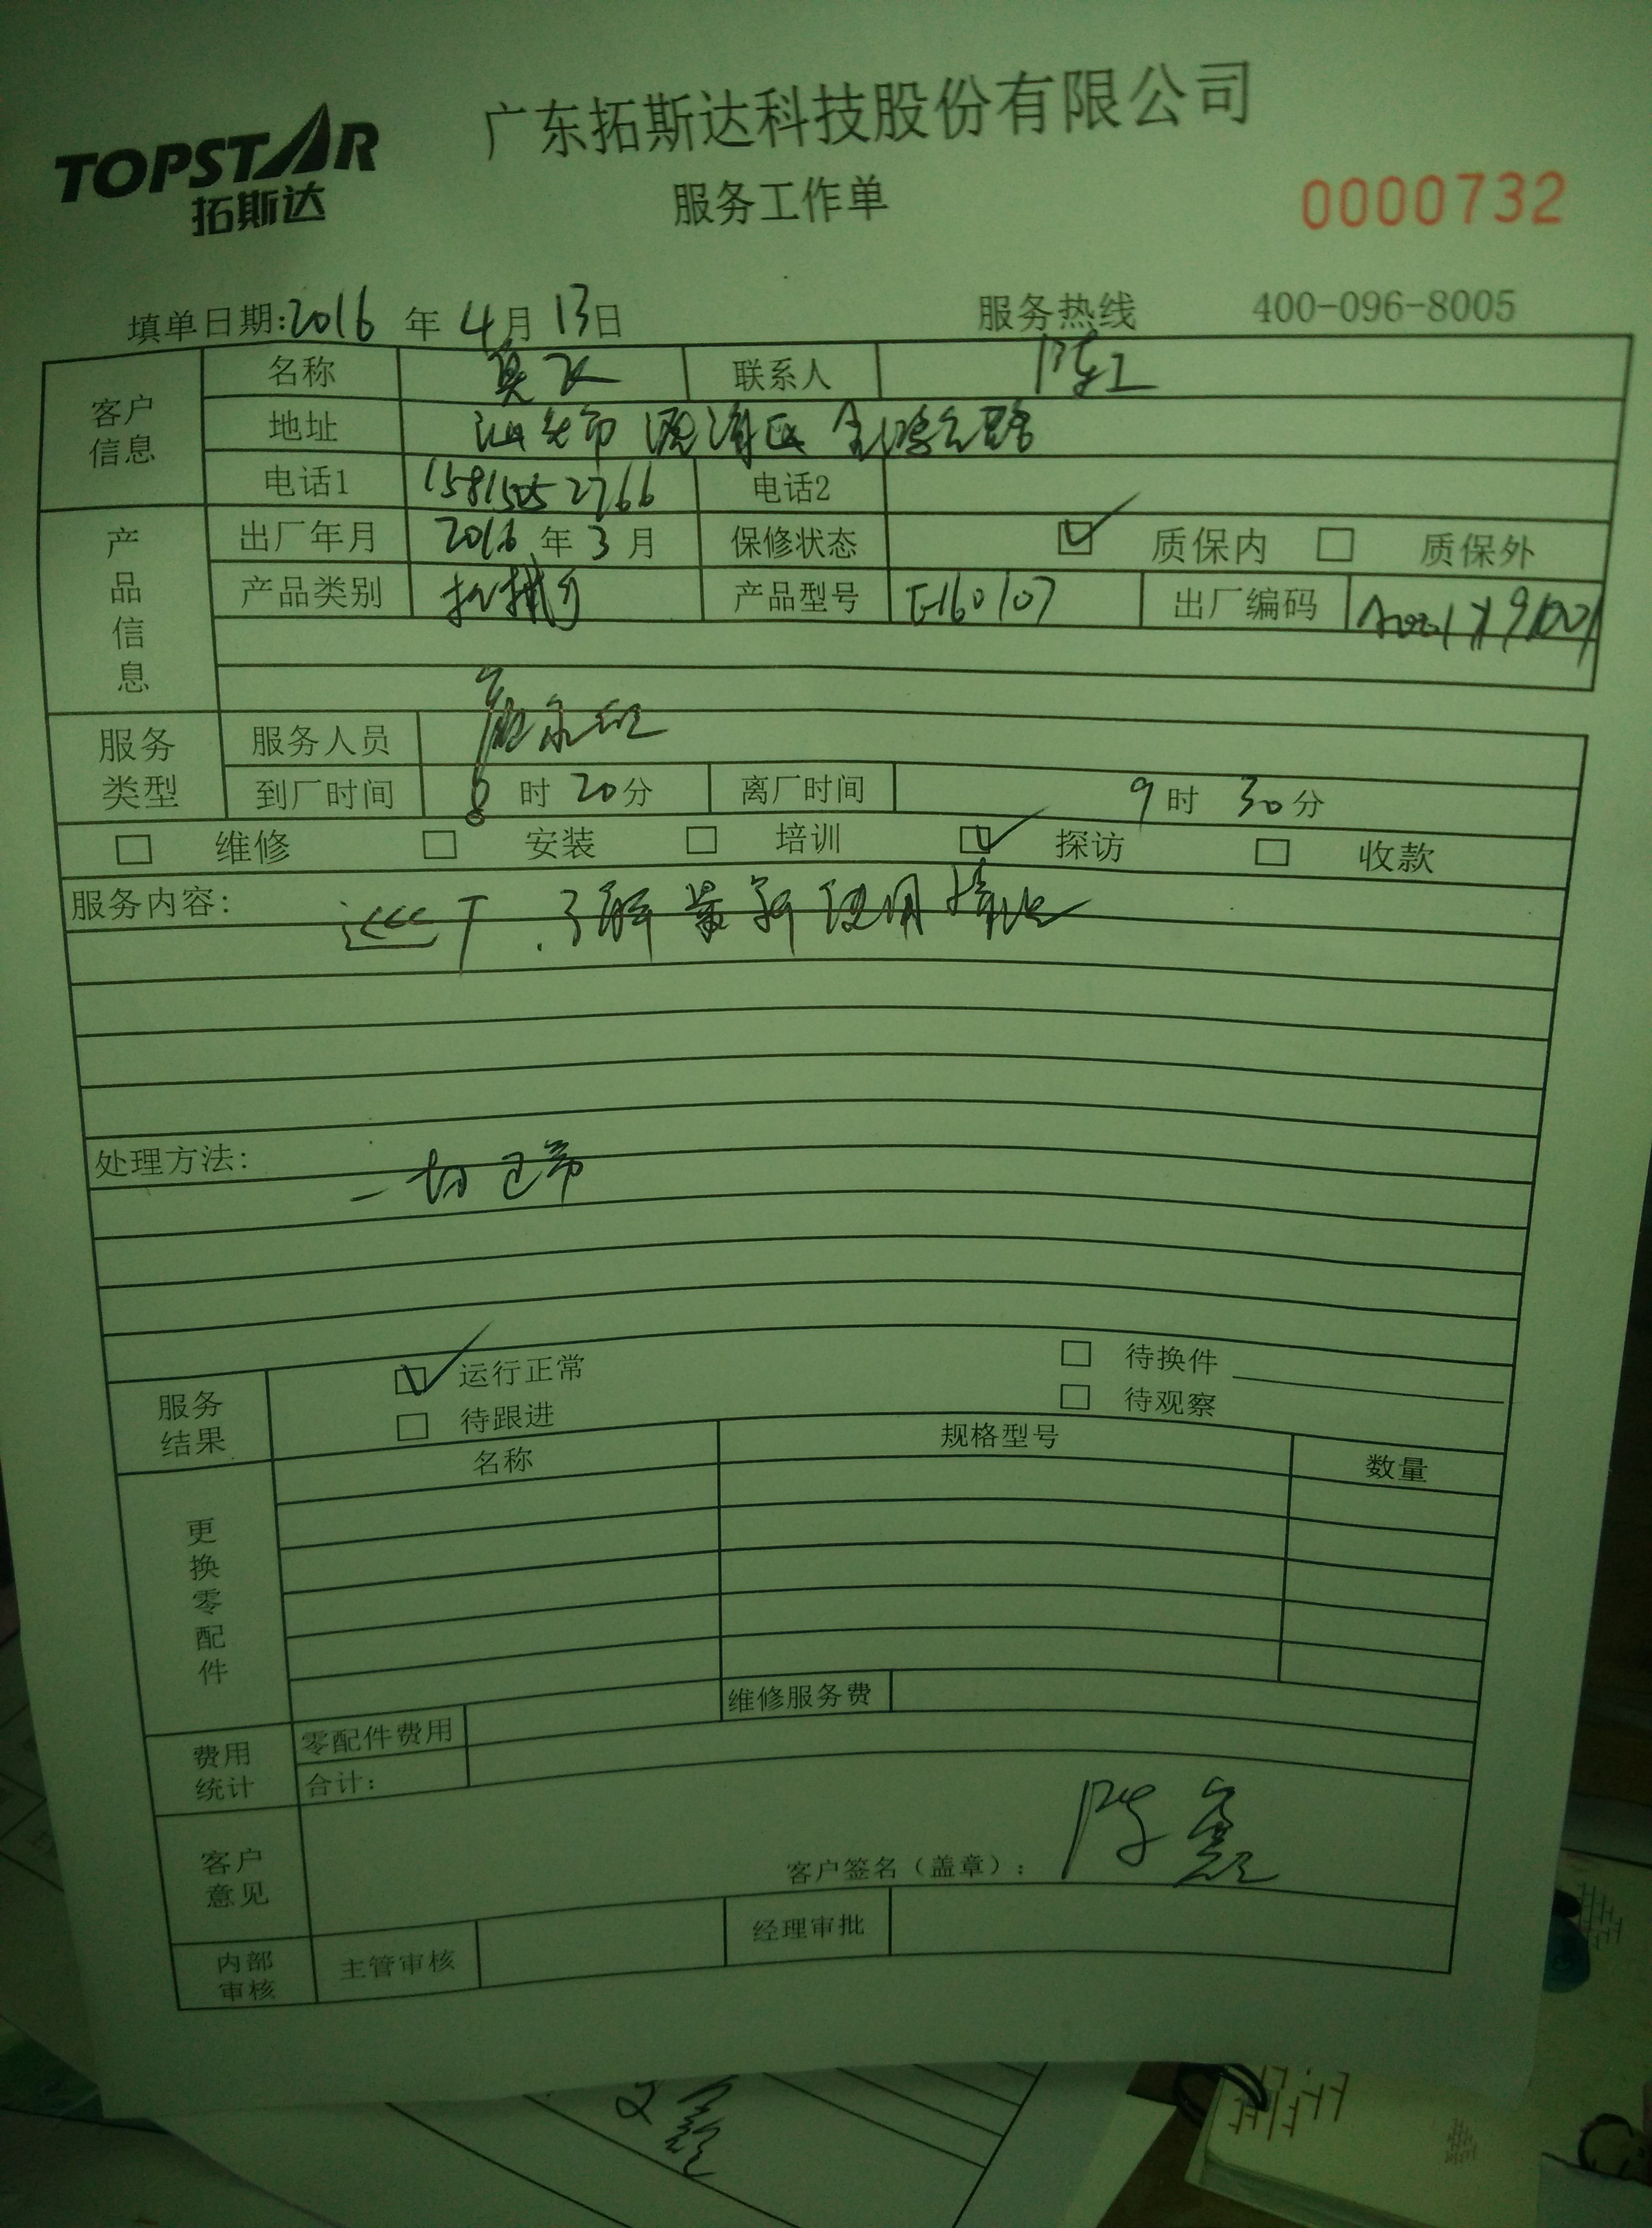 TOPSTAR
拓斯达
广东拓斯达科技股份有限公司
服务工作单
0000732
填单日期:2016 年 4月 13日 服务热线 400-096-8005
客户信息
名称 联系人 陈工
地址 汕头市 区
电话1 电话2
产品信息
出厂年月 2016 年 3 月 保修状态 质保内 质保外
产品类别 机械手 产品型号 出厂编码
服务类型
服务人员
到厂时间 8 时 20分 离厂时间 9 时 30分
维修 安装 培训 探访 收款
服务内容: 巡厂.了解最新使用情况
处理方法: 一切正常
服务结果
运行正常 待换件
待跟进 待观察
更换零配件
名称 规格型号 数量
费用统计
零配件费用 维修服务费
合计:
客户意见
客户签名(盖章): 陈鑫
内部审核
主管审核 经理审批